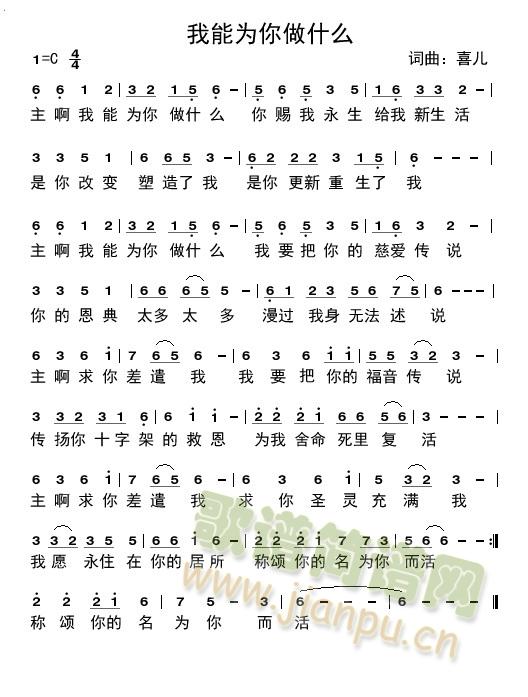 我能为你做什么
1=C 4/4 词曲：喜儿
6 6 1 2 | 3 2 1 5 6 - | 5 6 5 3 5 | 1 6 3 3 2 - |
主啊我能为你 做什么 你赐我永生给我新生活
3 3 5 1 | 6 6 5 3 - | 6 2 2 2 3 1 5 | 6 - - - |
是你改变 塑造了我 是你更新重生了 我
6 6 1 2 | 3 2 1 5 6 - | 5 6 5 3 5 | 1 6 3 2 - |
主啊我能为你 做什么 我要把你的慈爱传说
3 3 5 1 | 6 6 6 5 5 | 6 1 2 3 5 6 7 5 | 6 - - - |
你的恩典 太多太 多 漫过我身无法述 说
6 3 6 1 | 7 6 5 6 - | 6 3 6 1 1 | 5 5 3 2 3 - |
主啊求你差遣 我 我要把你的福音传 说
3 3 2 3 3 1 6 | 6 3 6 1 - | 2 2 2 1 6 6 5 6 | 3 - - - |
传扬你十字架的救恩 为我舍命死里复 活
6 3 6 1 | 7 6 5 6 - | 6 3 6 1 | 7 5 6 - |
主啊求你差遣 我 求你圣灵充满我
3 3 2 2 3 | 5 6 6 1 6 - | 2 2 2 1 7 7 3 | 5 5 6 - :||
我愿 永住在你的居所 称颂你的名为你 而活
2 2 2 1 6 | 7 5 3 - | 5 - 6 - | 6 - - - | 6 - - - ||
称颂你的名 为你 而 活
歌谱简谱网
www.jianpu.cn